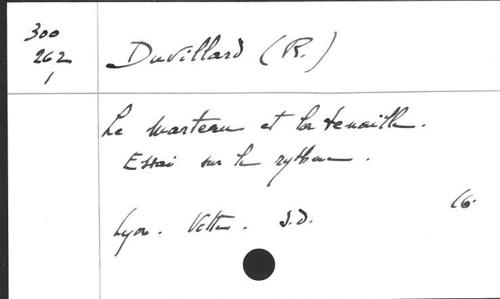 300
262
1
Duvillard (R.)
Le marteau et la tenaille.
Essai sur le rythme.
Lyon. Vitte. S.D. 16.